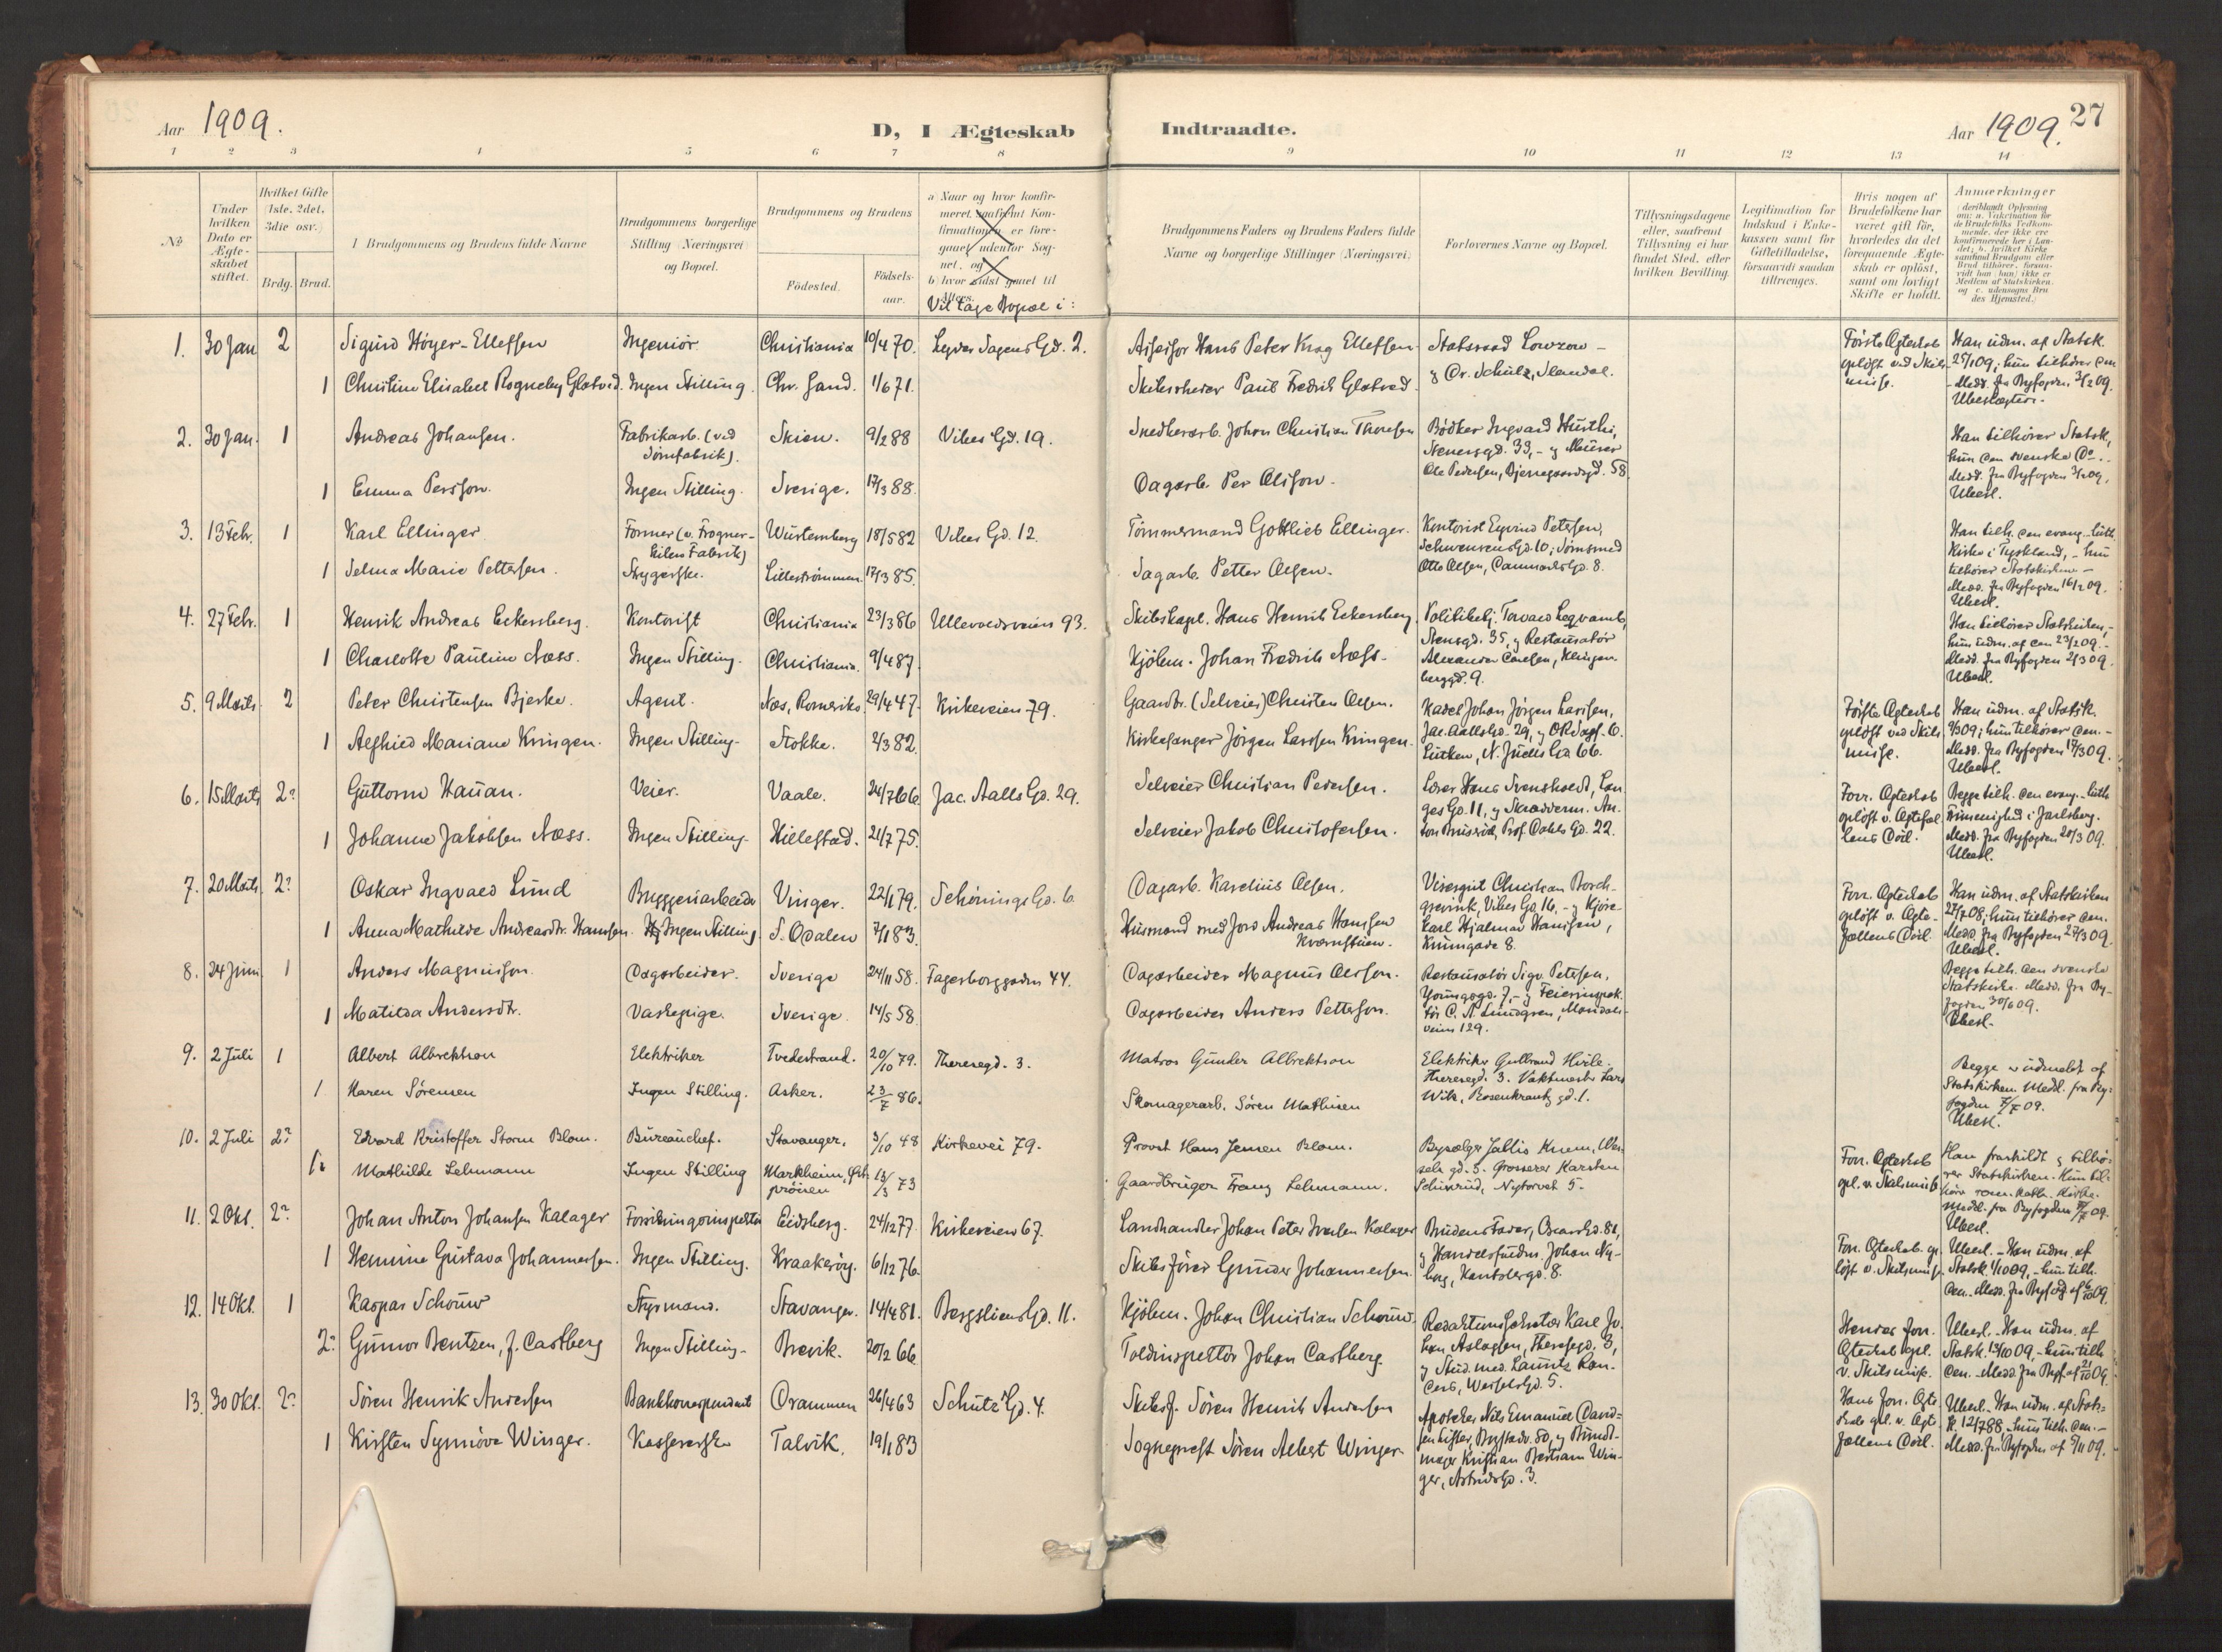 Aar 1909.
D, I Ægteskab
Indtraadte.
Aar 1909. 27
1 2 3 4 5 6 7 8 9 10 11 12 13 14
No
Under hvilken Dato er Ægteskabet stiftet.
Hvilket Gifte (1ste, 2det, 3die osv.)
Brdg. Brud.
1 Brudgommens og Brudens fulde Navne
Brudgommens borgerlige Stilling (Næringsvei) og Bopæl.
Brudgommens og Brudens
Födested.
Födselsaar.
a Naar og hvor konfirmeret, saafremt Konfirmationen er foregaaet udenfor Sognet, og
b) hvor sidst gaaet til Alters.
Vil tage Bopæl i:
Brudgommens Faders og Brudens Faders fulde Navne og borgerlige Stillinger (Næringsvei)
Forlovernes Navne og Bopæl.
Tillysningsdagene eller, saafremt Tillysning ei har fundet Sted, efter hvilken Bevilling.
Legitimation for Indskud i Enkekassen samt for Giftetilladelse, forsaavidt saadan tiltrænges.
Hvis nogen af Brudefolkene har været gift för, hvorledes da det foregaaende Ægteskab er oplöst, samt om lovligt Skifte er holdt.
Anmærkninger
1. 30 Jan 2 Sigurd Höyer-Ellefsen Ingeniör Christiania 10/4 70. Lyder Sagens Gd. 2. Assessor Hans Peter Krag Ellefsen Statsraad Lowzow - & Dr. Schulz, Mandal. Förste Egteskab oplöst ved Skilsmisse. Han udm. af Statsk. 25/1 09; hun tilhörer den - Medd. fra Byfogden 3/2 09.
1 Christine Elisabet Rogneby Glatved. Ingen Stilling. Chr. Sand. 1/6 71. Skibsreder Paul Fredrik Glatved.
2. 30 Jan. 1 Andreas Johansen. Fabrikarb. (ved Sömfabrik). Skien. 9/2 88 Vibes Gd. 19. Snedkerarb. Johan Christian Thoresen Bödker Ingvard Husthi, Stenersgd. 33, - & Murer Ole Pedersen, Bjerregaardsgd. 58. Han tilhörer Statsk, hun den svenske Do. Medd. fra Byfogden 3/2 09.
1 Emma Persson. Ingen Stilling. Sverige. 17/3 88. Dagarb. Per Olisson.
3. 13 Febr. 1 Karl Ellinger Former (v. Frognerkilens Fabrik) Würtemberg 18/5 82 Vibes Gd. 12. Tömmermand Gottlieb Ellinger. Kontorist Eyvind Petersen, Schwensens Gd. 10; Sömsmed Otto Olsen, Danmarks Gd. 8. Han tilh. den evang.-luth. Kirke i Tyskland, - hun tilhörer Statskirken - Medd. fra Byfogden 16/2 09.
1 Selma Marie Pettersen. Strygerske. Lilleströmmen 17/3 85. Sagarb. Petter Olsen.
4. 27 Febr. 1 Henrik Andreas Eckersberg. Kontorist Christiania 23/3 86 Ullevoldsveien 93. Skibskapt. Hans Henrik Eckersberg. Stensgd. 35, & Restauratör Alexander Carlsen, Klingenberggd. 9. Han tilhörer Statskirken, - hun udm. af den 23/2 09. - Medd. fra Byfogden 2/3 09.
1 Charlotte Pauline Næss. Ingen Stilling. Christiania. 9/4 87. Kjöbm. Johan Fredrik Næss.
5. 9 Marts 2 Peter Christensen Bjerke. Agent. Næs, Romerike. 29/4 47. Kirkeveien 79. Gaardbr. (Selveier) Christen Olsen. Johan Jörgen Larssen, Jac. Aalls Gd. 29, Förste Egteskab oplöst ved Skilsmisse. Han udm. af Statsk. hun tilhörer den. - Medd. fra Byfogden 17/3 09.
1 Alfhild Mariane Kringen. Ingen Stilling. Stokke. 2/3 82. Kirkesanger Jörgen Larssen Kringen.
6. 15 Marts 2. Guttorm Hauan. Veier. Vaale. 24/7 66. Jac. Aalls Gd. 29. Selveier Christian Pedersen. Hans Svenskerud, Langes Gd. 11, & Skrædderm. Anton Prof. Dahls Gd. 22. Forr. Egteskab oplöst v. Egtefællens Död. Begge tilh. den evang.-luth. Frimenighed i Jarlsberg. Medd. fra Byfogden 20/3 09.
1 Johanne Jakobsen Næss. Ingen Stilling. Hillestad. 21/7 75. Selveier Jakob Christofersen.
7. 20 Marts 2. Oskar Ingvald Lund Bryggeriarbeider Vinger. 22/1 79. Schönings Gd. 6. Dagarb. Karelius Olsen. Visergut Christian Borchgrevink, Vibes Gd. 16, - & Kjörekarl Hjalmar Hansen, Krumgade 8. Forr. Egteskab oplöst v. Egtefællens Död. Han udm. af Statskirken 27/7 08; hun tilhörer den. Medd. fra Byfogden 27/3 09.
1 Anna Mathilde Andreasdtr. Hansen. Ingen Stilling. S. Odalen 7/1 83. Husmand med Jord Andreas Hansen Kværnstuen.
8. 24 Juni 1 Anders Magnusson. Dagarbeider. Sverige 24/11 58. Fagerborggaden 44. Dagarbeider Magnus Olsson. Restauratör Sigv. Petersen, Youngsgd. 7, - & Feierinspektör C. A. Lundgren, Mandalsveien 129. Begge tilh. den svenske Statskirke. Medd. fra Byfogden 30/6 09.
1 Matilda Andersdtr. Vaskepige. Sverige. 14/5 58. Dagarbeider Anders Pettersson.
9. 2 Juli 1 Albert Albrektson Elektriker Tvedestrand. 20/10 79. Theresegd. 3. Matros Gunder Albrektson Elektriker Gulbrand Hvile. Theresegd. 3. Vaktmester Lars Wik, Rosenkrantzgd. 1. Begge er udmeldt af Statskirken. Medd. fra Byfogden 7/7 09.
1 Karen Sörensen Ingen Stilling. Asker. 23/7 86. Skomagerarb. Sören Mathisen
10. 2 Juli 2. Edvard Kristoffer Storm Blom. Bureauchef. Stavanger. 3/10 48 Kirkevei 79. Provst Hans Jensen Blom. Grosserer Karsten Schierud, Nytorvet 5. Forr. Egteskab opl. v. Skilsmisse. Han fraskildt & tilhörer Statskirken. Hun tilhörer rom. kath. Kirke. Medd. fra Byfogden
1. Mathilde Lehmann Ingen Stilling Markheim, Östpröisen 13/3 73 Gaardbruger Franz Lehmann.
11. 2 Okt. 2. Johan Anton Johansen Kalager Forsikringsinspektör Eidsberg. 24/12 77. Kirkeveien 67. Landhandler Johan Peter Iversen Kalager Brudens Fader, Oscarsgd. 81, & Handelsfuldm. Johan Nyberg, Kantslergd. 8. Forr. Egteskab oplöst v. Skilsmisse. Ubesl. - Han udm. af Statsk. 1/10 09, - hun tilh. den. Medd. fra Byfogd. af 6/10 09.
1 Hermine Gustava Johannesen. Ingen Stilling. Kraakeröy. 6/12 76. Skibsförer Gunder Johannesen.
12. 14 Okt. 1 Kaspar Schouw Styrmand. Stavanger. 14/4 81. Bergsliens Gd. 11. Kjöbm. Johan Christian Schouw. Redaktionssekretær Karl Johan Aslagsen, Theresegd. 3, & Stud. med. Wessels Gd. 5. Hendes forr. Egteskab opl. v. Skilsmisse. Ubesl. - Han udm. af Statsk. 13/10 09, - hun tilh. den. - Medd. fra Byf. af 21/10 09.
2. Gunvor Bentzen, f. Castberg Ingen Stilling. Brevik. 20/2 66. Toldinspektör Johan Castberg.
13. 30 Okt. 2. Sören Henrik Andersen Bankkorrespondent Drammen 26/4 63 Schultz' Gd. 4. Skibsf. Sören Henrik Andersen Apotheker Nils Emanuel Davidsen Bygdö. 80, & Kristian Bertram Winger, Astrids Gd. 3. Hans forr. Egteskab opl. v. Egtefællens Död. Ubesl. - Han udm. af Statsk. 12/7 88 - hun tilh. den. - Medd. fra Byfogden af 5/11 09.
1 Kirsten Synnöve Winger. Kassererske Talvik. 19/1 83 Sogneprest Sören Albert Winger.